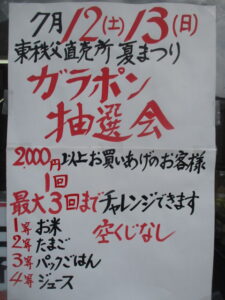 7月12(土)13(日)
東秩父直売所 夏まつり
ガラポン
抽選会
2,000円以上お買いあげのお客様
1回
最大3回までチャレンジできます
1等 お米
2等 たまご
空くじなし
3等 パックごはん
4等 ジュース